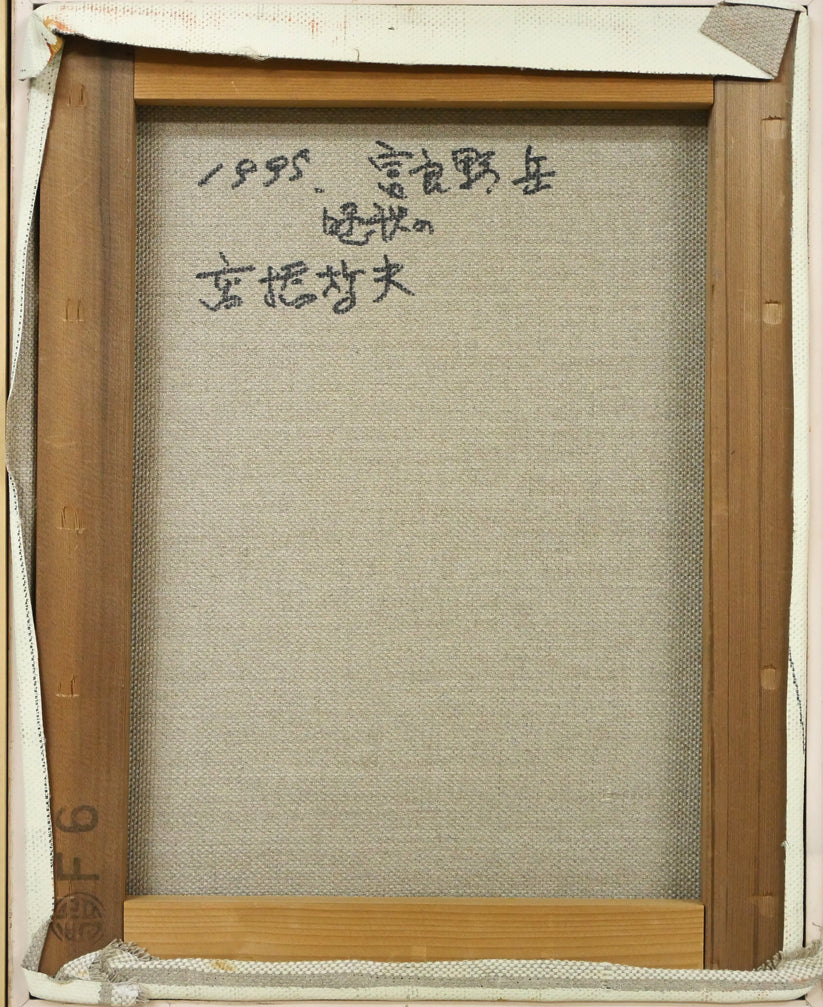 1995. 富良野岳
晩秋の
高橋哲夫
F6